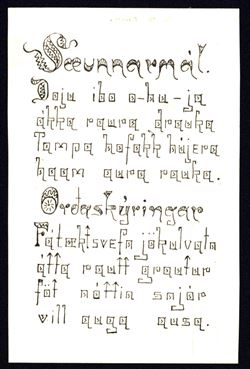 Sæunnarmál.
Doju ibo a-hu-ja
akka raura drauka
Tampa hofakk hújera
haam aura rauka.
Orðaskýringar
Fátækt svefn jökulvatn
átta rautt grautur
föt nóttin snjór
vill auga ausa.